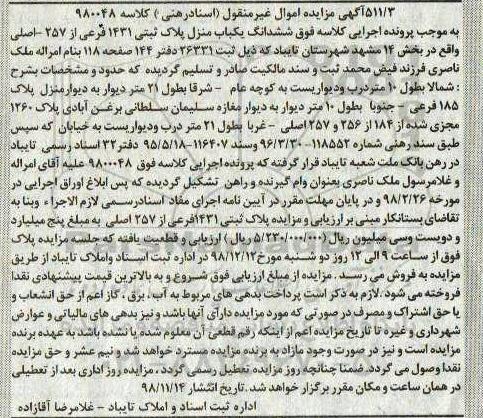 ۵۱۱/۳آگهی مزایده اموال غیرمنقول (اسنادرهنی) کلاسه ۹۸۰۰۰۴۸
به موجب پرونده اجرایی کلاسه فوق ششدانگ یکباب منزل پلاک ثبتی ۱۴۳۱ فرعی از ۲۵۷ -اصلی
واقع در بخش ۱۴ مشهد شهرستان تایباد که ذیل ثبت ۲۶۳۳۱ دفتر ۱۴۴ صفحه ۱۱۸ بنام امراله ملک
ناصری فرزند فیض محمد ثبت و سند مالکیت صادر و تسلیم گردیده که حدود و مشخصات بشرح
: شمالا بطول ۱۰ متردرب ودیواریست به کوچه عام - شرقا بطول ۲۱ متر دیوار به دیوارمنزل پلاک
۱۸۵ فرعی - جنوبا بطول ۱۰ متر دیوار به دیوار مغازه سلیمان سلطانی برغن آبادی پلاک ۱۲۶۰
مجزی شده از ۱۸۴ از ۲۵۶ و ۲۵۷ اصلی - غربا بطول ۲۱ متر درب ودیواریست به خیابان که سپس
طبق سند رهنی شماره ۱۱۸۵۵۲-۹۶/۳/۳۰ وسند ۱۱۶۴۰۷-۹۵/۵/۱۸ دفتر۳۲ اسناد رسمی تایباد
در رهن بانک ملت شعبه تایباد قرار گرفته که پرونده اجرایی کلاسه فوق ۹۸۰۰۰۴۸ علیه آقای امراله
و غلامرسول ملک ناصری بعنوان وام گیرنده و راهن تشکیل گردیده که پس ابلاغ اوراق اجرایی در
مورخه ۹۸/۲/۲۶ و در پایان مهلت مقرر در آیین نامه اجرای مفاد اسنادرسمی لازم الاجراء وبنا به
تقاضای بستانکار مبنی بر ارزیابی و مزایده پلاک ثبتی ۱۴۳۱فرعی از ۲۵۷ اصلی به مبلغ پنج میلیارد
و دویست وسی میلیون ریال (۵/۲۳۰/۰۰۰/۰۰۰ ریال) ارزیابی و قطعیت یافته که جلسه مزایده پلاک
فوق از ساعت ۹ الی ۱۲ روز دو شنبه مورخ۹۸/۱۲/۱۲ در اداره ثبت اسناد واملاک تایباد از طریق
مزایده به فروش می رسد . مزایده از مبلغ ارزیابی فوق شروع و به بالاترین قیمت پیشنهادی نقدا
فروخته می شود .لازم به ذکر است پرداخت بدهی های مربوط به آب، برق ، گاز اعم از حق انشعاب و
یا حق اشتراک و مصرف در صورتی که مورد مزایده دارای آنها باشد و نیز بدهی های مالیاتی و عوارض
شهرداری و غیره تا تاریخ مزایده اعم از اینکه رقم قطعی آن معلوم شده یا نشده باشد به عهده برنده
مزایده است و نیز در صورت وجود مازاد به برنده مزایده مسترد خواهد شد و نیم عشر و حق مزایده
نقدا وصول می گردد. ضمنا چنانچه روز مزایده تعطیل رسمی گردد ، مزایده روز اداری بعد از تعطیلی
در همان ساعت و مکان مقرر برگزار خواهد شد .تاریخ انتشار ۹۸/۱۱/۱۴
اداره ثبت اسناد و املاک تایباد - غلامرضا آقازاده